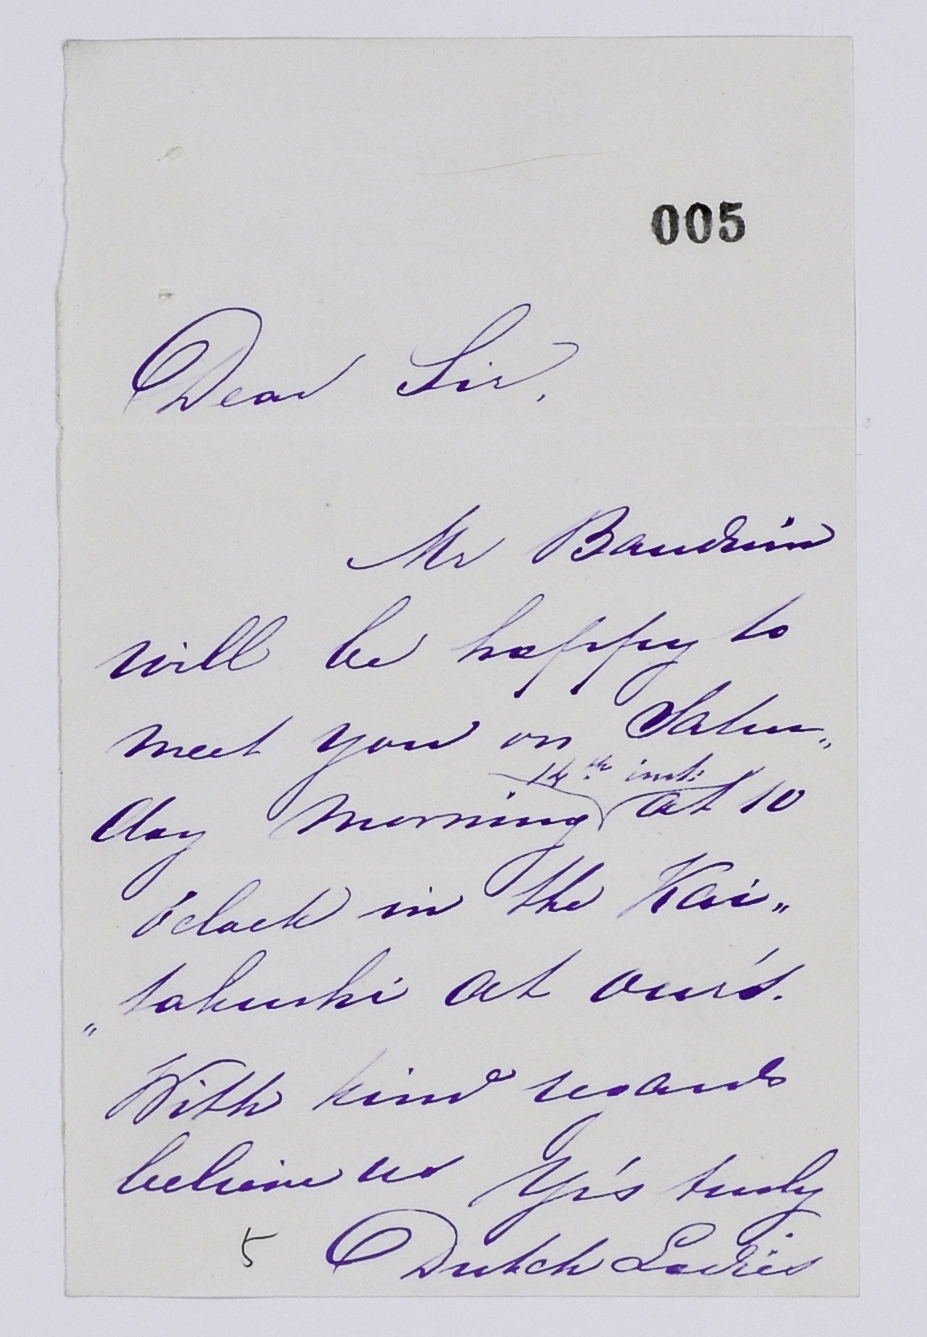 005
Dear Sir,
Mr Bauduin
will be happy to
meet you on Satur„
14th inst:
day morning at 10
o'clock in the Kai„
„takushi at our's.
With kind regards
believe us Yr's truly
5 Dutch Ladies